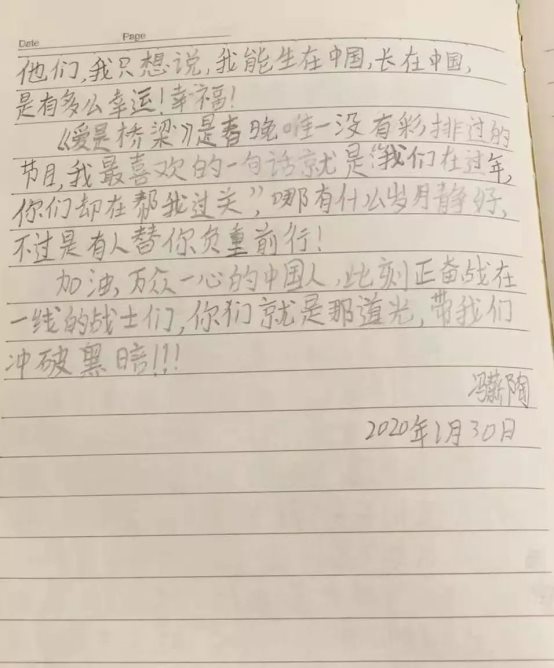 Date Page
他们,我只想说,我能生在中国,长在中国,
是有多么幸运!幸福!
《爱是桥梁》是春晚唯一没有彩排过的
节目,我最喜欢的一句话就是“我们在过年,
你们却在帮我过关”,哪有什么岁月静好,
不过是有人替你负重前行!
加油,万众一心的中国人,此刻正奋战在
一线的战士们,你们就是那道光,带我们
冲破黑暗!!!
冯薪陶
2020年1月30日